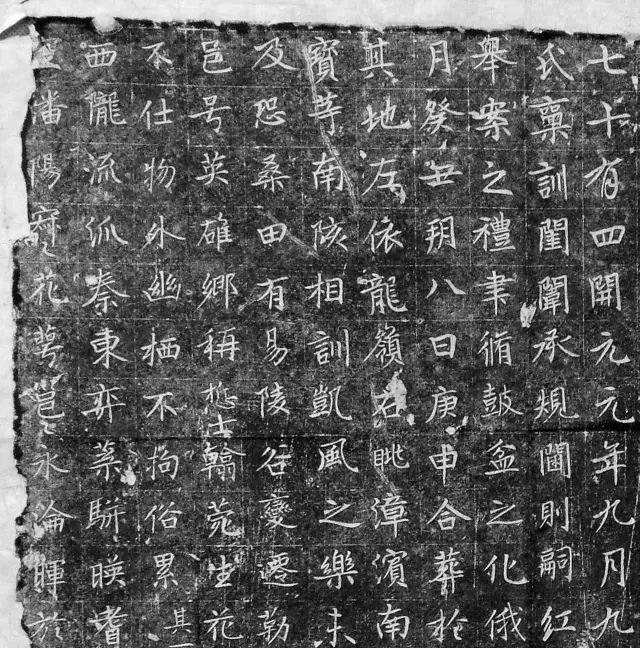 七十有四開元元年九月九
氏稟訓閨闈承規閫則嗣紅
舉案之禮聿循鼓盆之化俄
月癸丑朔八日庚申合葬於
其地左依龍嶺右眺漳濱南
寶等南陔相訓凱風之樂未
及恐桑田有易陵谷變遷勒
邑号英雄鄉稱慜士翰菀生花
不仕物外幽栖不拘俗累其一
西隴流派秦東弈葉駢暎耆
番陽府花萼邕永淪暉於